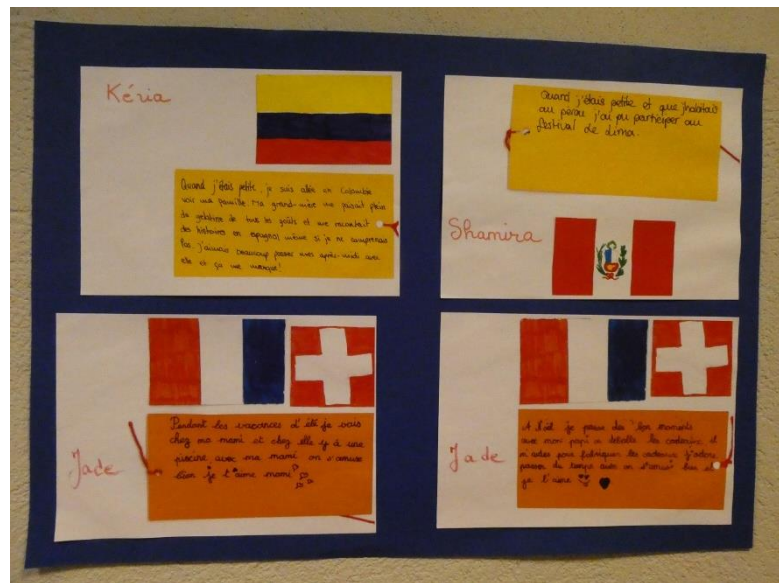 Kéria
Quand j'étais petite, je suis allée en Colombie
voir ma famille. Ma grand-mère me faisait plein
de gelatine de tous les goûts et me racontait
des histoires en espagnol même si je ne comprenais
pas. J'aimais beaucoup passer mes après-midi avec
elle et ça me manque!
Quand j'étais petite et que j'habitais
au pérou j'ai pu participer au
festival de Lima.
Shamira
Pendant les vacances d'été je vais
chez ma mami et chez elle y à une
piscine avec ma mami on s'amuse
bien je t'aime mami
Jade
A l'été je passe des bon moments
avec mon papi on les et
m'aider pour fabriquer les j'adore
passer du temps avec on s'amuse bien et
je t'aime
Jade